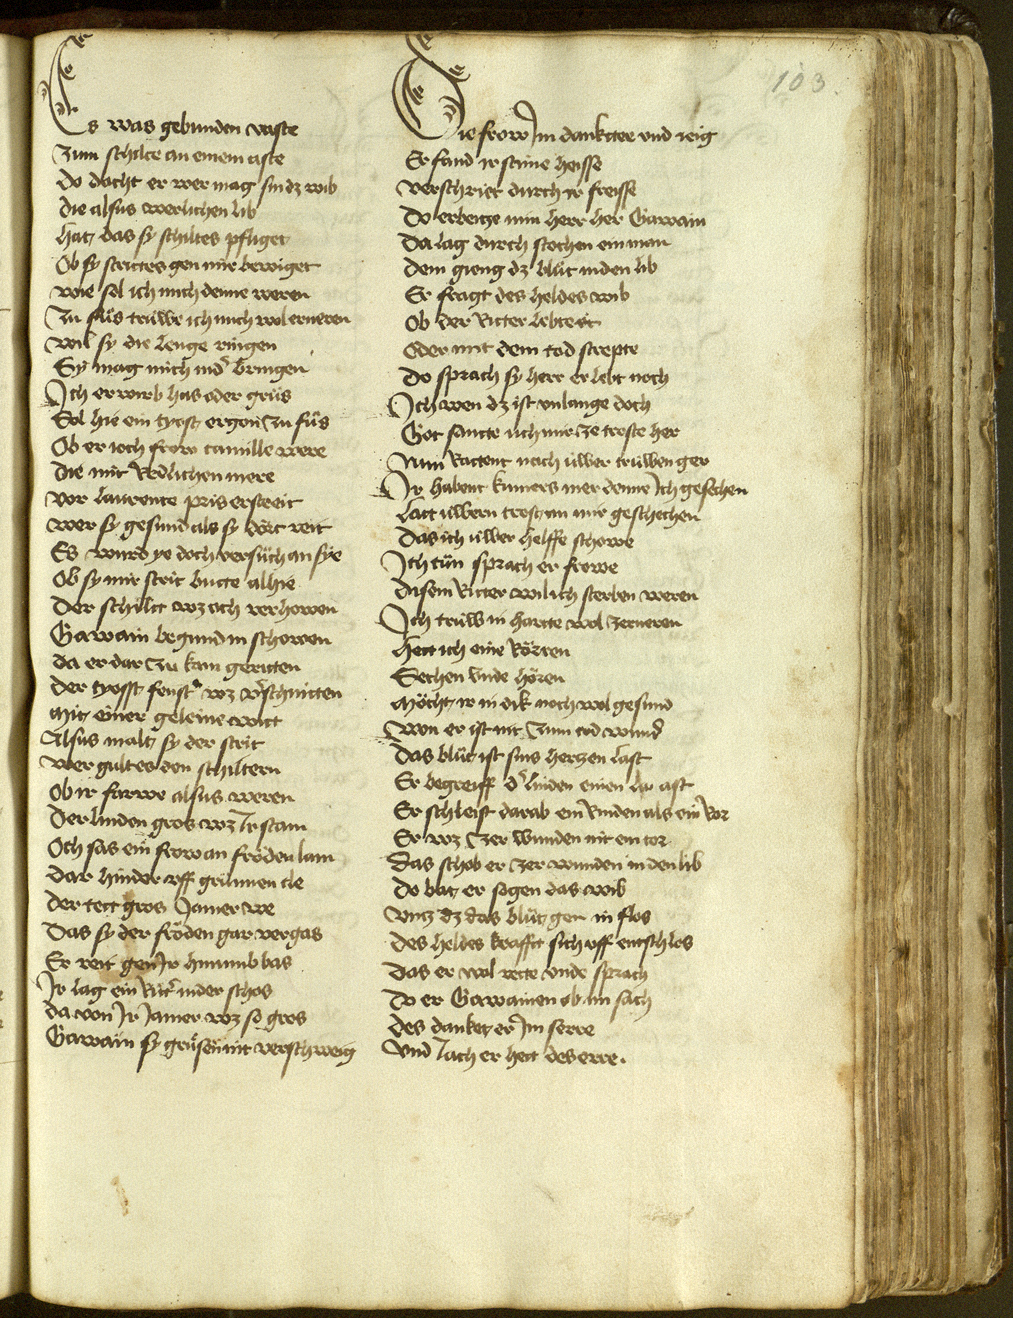 103
Es was gebunden vaste
Zum schilte an einem aste
Do docht er wer mag sin dz wib
Die alsus werlichen lib
Hat das sy schiltes pfliget
Ob sy strittes gen mir bewiget
Wie sol ich mich denne weren
Zu füs trüwe ich mich wol erneren
Wil sy die lenge ringen
Sy mag mich nidʼ bringen
Ich erwirb has oder grüs
Sol hie ein tyost ergon zu füs
Ob er ioch frow camille were
Die mit Redlichen mere
Vor laurente pris erstreit
Wer sy gesund als sy dört reit
Es wurd ye doch versüch an sÿe
Ob sy mir strit butte alhie
Der schiltt wz och verhowen
Gawain begund in schowen
da er dar zu kam geritten
Der tyosst fenstʼ wz vʼschnitten
Mit einer geleine witt
Alsus malt sy der strit
Wer gultes den schiltern
Ob ir farwe alsus weren
Der linden gros wz Ir stam
Och sas ein frow an fröden lam
Dar hinder vff grünnen cle
Der tett gros Jamer we
Das sy der fröden gar vergas
Er reit gen Ir hinumb bas
Ir lag ein Rittʼ in der schos
da von Ir Jamer wz so gros
Gawain sy grüsen nit verschweig
Die frow Im dankctee vnd neig
Er fand ir stime heisse
Verschriet durch ir freisse
Do erbeitze min herr her Gawain
Da lag durch stochen ein man
Dem gieng dz blüt in den lib
Er fragt des heldes wib
Ob der Ritter lebte
Oder mit dem tod strepte
Do sprach sy herr er lebt noch
Ich wen dz ist vnlange doch
Got sante üch mir ze troste her
Nun Rattent noch üwer trüwen ger
Ir habent kumers mer denne Ich gesechen
Latt üwern trost an mir geschechen
Das ich üwer helffe schowe
Ich tün sprach er frowe
Disem Ritter wil ich sterben weren
Ich trüw in hartte wol zerneren
Hett ich eine Rörren
Sechen vnde hören
Möcht ir in dik noch wol gesund
Won er ist nit zum tod wundʼ
Das blüt ist sins hertzen last
Er begreiff dʼ linden einen ast
Er schleist darab ein Rinden als ein Ror
Er wz zer wunden nit ein tor
Das schob er zer wunden in den lib
Do bat er sogen das wib
Vntz dz das blüt gen in flos
Des heldes krafft sich vff entschlos
Das er wol rette vnde sprach
Do er Gawainen ob im sach
Des danket er Im serre
Vnd Jach er hett des erre.